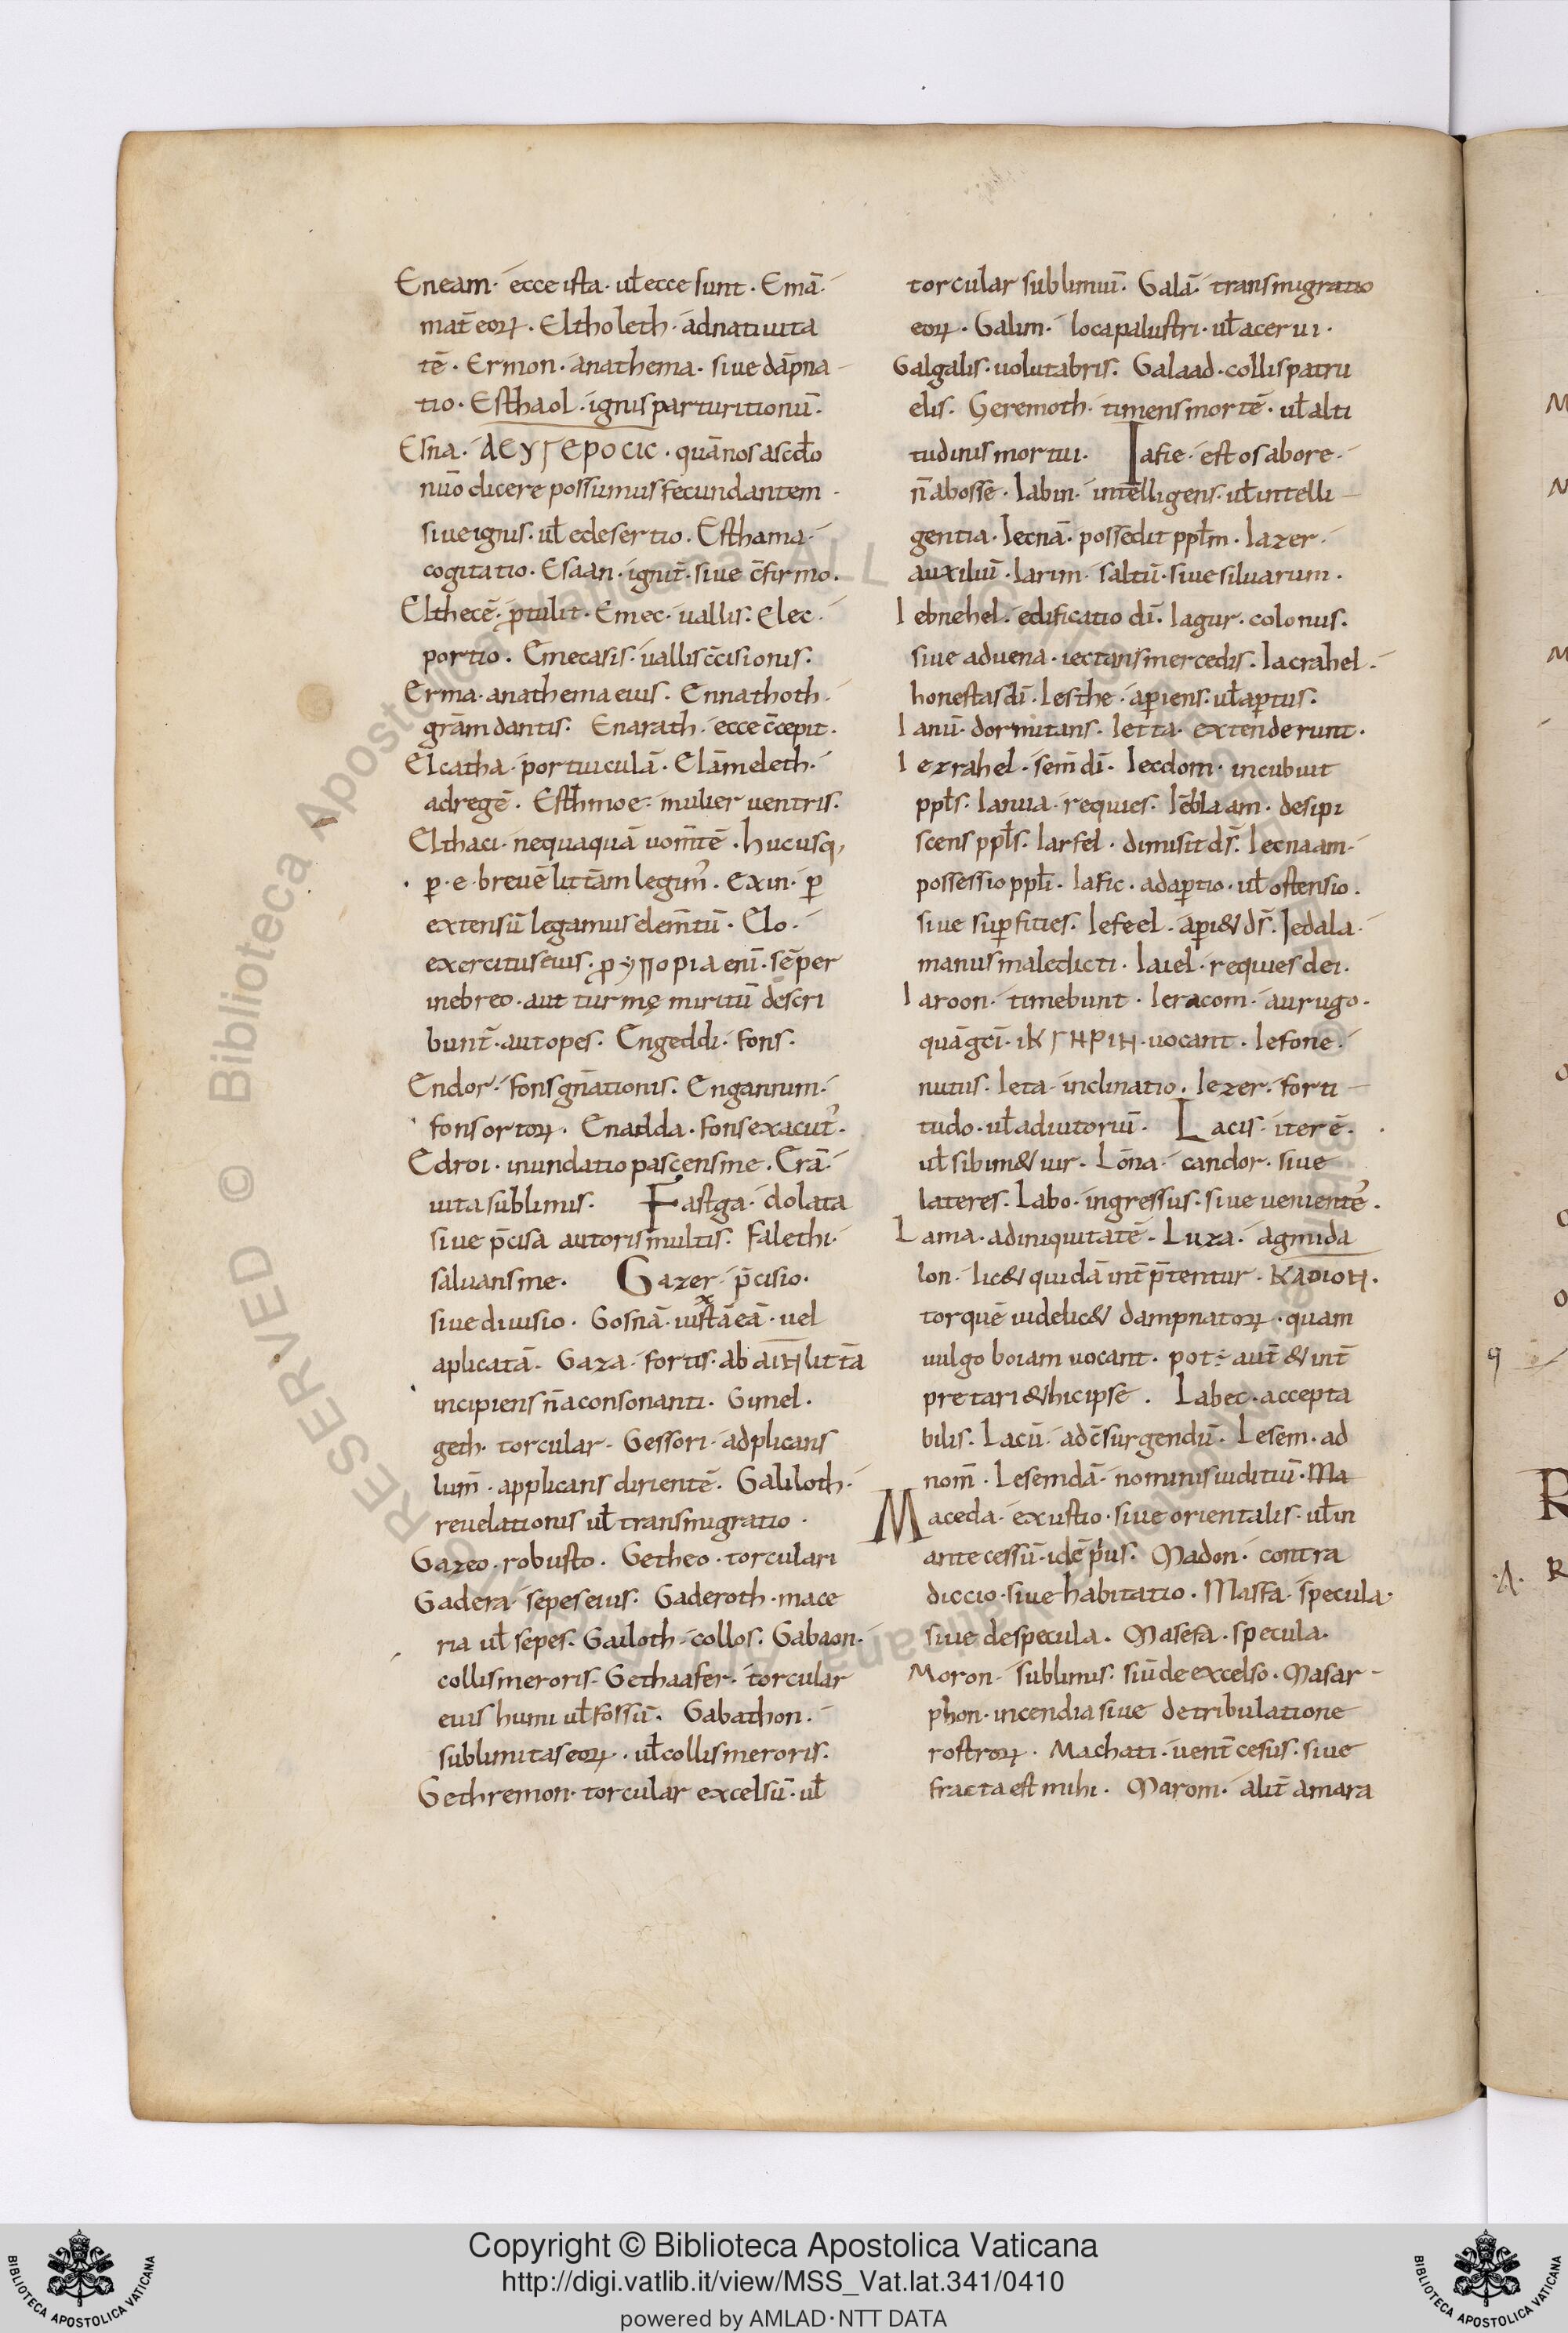 Eneam· ecce ista· uł ecce sunt· Emā·
mat̄ eoꝝ· Eltholeth· ad natiuita
tē· Ermon· anathema· siue dāpna
tio· Esthaol· ignis parturitionū·
Esna· ΔΕΥΤΕΡΟCΙC· quā nos ascdo
nūo dicere possumus fecundantem·
siue ignis· uł edesertio· Esthama·
cogitatio· Esaan· ignit̄· siue c̄firmo·
Elthecē· ptulit· Emec· uallis· Elec·
portio· Emecasis· uallis c̄cisionis·
Erma· anathema eius· Ennathoth·
grām dantis· Enarath· ecce c̄cepit·
Elcatha· portiuiculā· Elāmeleth·
ad regē· Esthmoe· mulier uentris·
Elthaci· nequaquā uom̄tē· hucusq;
ꝑ· e· breuē litt̄am legim᾽· Exin· ꝑ
extensū legamus elem̄tū· Elo·
exercitus eius· enī· sēper
inebreo· aut turmę miritū descri
bunt̄· aut opes· Engeddi· fons·
Endor· fons gn̄ationis· Engannim·
fons ortoꝝ· Enadda· fons exacut᾽·
Edroi· inundatio pascens me· Erā·
uita sublimis· Fastga· dolata
siue p̄cisa aut oris multis· Falethi·
saluans me· Gazer· p̄cisio·
siue diuisio· Gosnā· iuxtā eā· uel
aplicatā· Gaza· fortis· ab ΑΙΗ litt̄a
incipiens n̄ a consonanti· Gimel·
geth· torcular· Gessori· adplicans
lum̄· applicans dirientē· Galiloth·
reuelationis uł transmigratio·
Gazeo· robusto· Getheo· torculari
Gadera· sepes eius· Gaderoth· mace
ria uł sepes· Gailoth· collos· Gabaon·
collis meroris· Gethaafer· torcular
eius humi uł fossū· Gabathon·
sublimitas eoꝝ· uł collis meroris·
Gethremon· torcular excelsū· uł
torcular sublimiū· Galā· transmigratio
eoꝝ· Galim· loca palustri· uł acerui·
Galgalis· uolutabris· Galaad· collis patru
elis· Geremoth· timens mortē· uł alti
tudinis mortui· Iafie· est os abore·
n̄ abosse· Iabin· intelligens· uł intelli
gentia· Iecnā· possedit ppłm· Iazer·
auxiliū· Iarim· saltū· siue siluarum·
Iebnehel· edificatio dī· Iagur· colonus·
siue aduena· iectans mercedis· Iacrahel·
honestas dī· Iesthe· aꝑiens· uł aꝑtus·
Ianū· dormitans· Ietta· extenderunt·
Iezrahel· sem̄ dī· Iecdom· incubuit
ppłs· Ianua· requies· Iēblaam· desipi
scens ppłs· Iarfel· dimisit ds̄· Iecnaam·
possessio ppłi· Iafic· adaꝑtio· uł ostensio·
siue suꝑfities· Iefeel· aꝑi& ds̄· Iedala·
manus maledicti· Iaiel· requies dei·
Iaroon· timebunt· Ieracom· aurugo·
quā gc̄i· ΙΚΤΗΡΙΗ· uocant· Iefone·
nutus· Ieta· inclinatio· Iezer· forti
tudo· uł adiutoriū· Lacis· iter ē·
uł sibim& uir· Lōna· candor· siue
lateres· Labo· ingressus· siue uenientē᾽·
Lama· ad iniquitatē· Luza· agmida
lon· lic& quidā int̄p̄tentur· ΚΛΟΙΟΗ·
torquē uidelic& dampnatoꝝ· quam
uulgo boiam uocant· pot÷ aut̄ & int̄
pretari & hic ipse· Labec· accepta
bilis· Lacū· ad c̄surgendū· Lesem· ad
nom̄· Lesemdā· nominis iuditiū· Ma
Maceda· exustio· siue orientalis· uł in
antecessū· idē p̄us· Madon· contra
diccio· siue habitatio· Massa· specula·
siue de specula· Masefa· specula·
Moron· sublimis· siū de excelso· Masar
phon· incendia siue de tribulatione
rostroꝝ· Machati· uent̄ cesus· siue
fracta est mihi· Marom· alit̄ amara
Copyright © Biblioteca Apostolica Vaticana
http://digi.vatlib.it/view/MSS_Vat.lat.341/0410
powered by AMLAD·NTT DATA